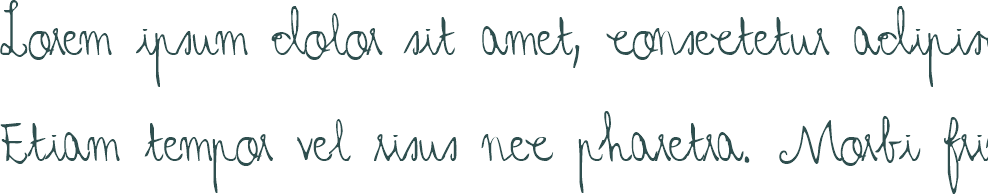 Lorem ipsum dolor sit amet, consectetur adipis
Etiam tempor vel risus nec pharetra. Morbi fri